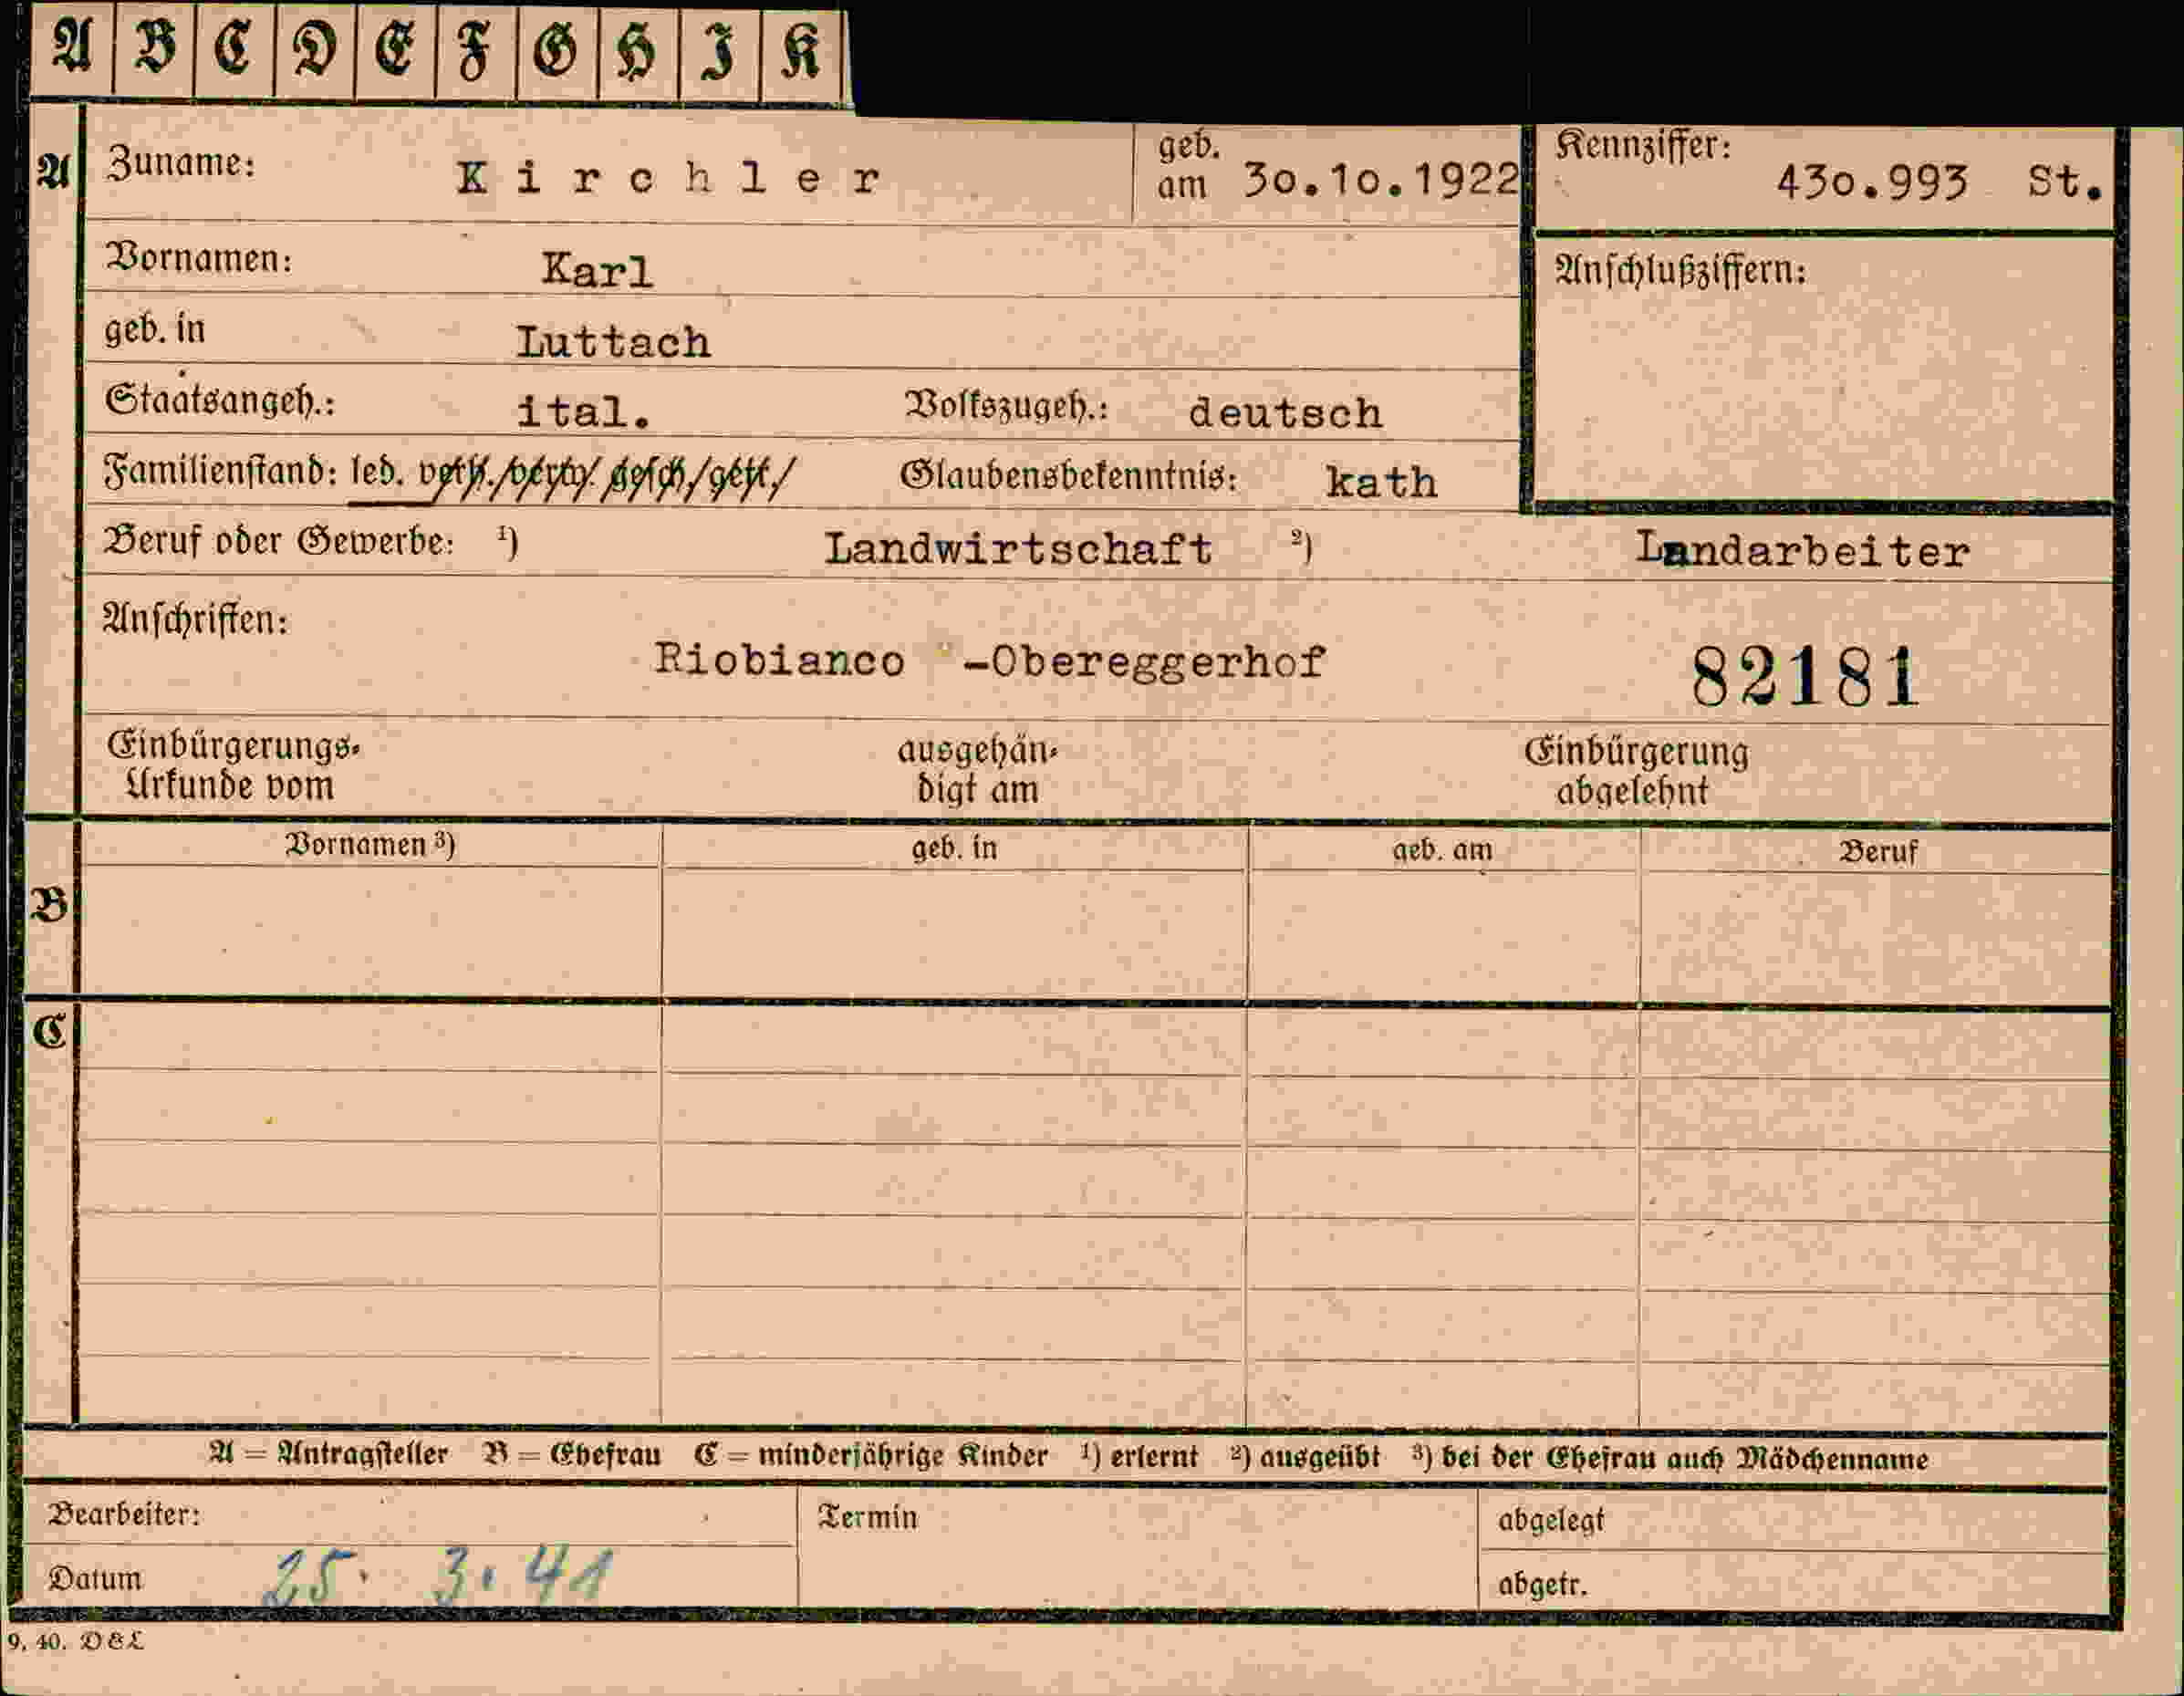 A B C D E F G H I K
A Zuname: Kirchler geb. am 30.10.1922 Kennziffer: 430.993 St.
Vornamen: Karl Anschlußziffern:
geb. in Luttach
Staatsangeh.: ital. Volkszugeh.: deutsch
Familienstand: led. verh. verw. gesch. getr. Glaubensbekenntnis: kath
Beruf oder Gewerbe: ¹) Landwirtschaft ²) Landarbeiter
Anschriften:
Riobianco -Obereggerhof 82181
Einbürgerungs- ausgehän- Einbürgerung
Urkunde vom digt am abgelehnt
Vornamen ³) geb. in geb. am Beruf
B
C
A = Antragsteller B = Ehefrau C = minderjährige Kinder ¹) erlernt ²) ausgeübt ³) bei der Ehefrau auch Mädchenname
Bearbeiter: Termin abgelegt
Datum 25. 3. 41 abgetr.
9. 40. D&L